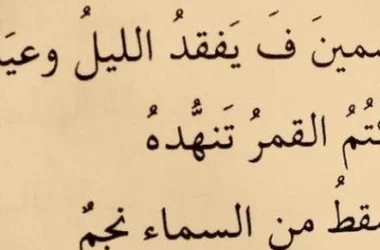 سمينَ فَ يَفقدُ الليلُ وعيَ
كتُمُ القمرُ تَنهُّدهُ
سقطُ من السماء نجمٌ